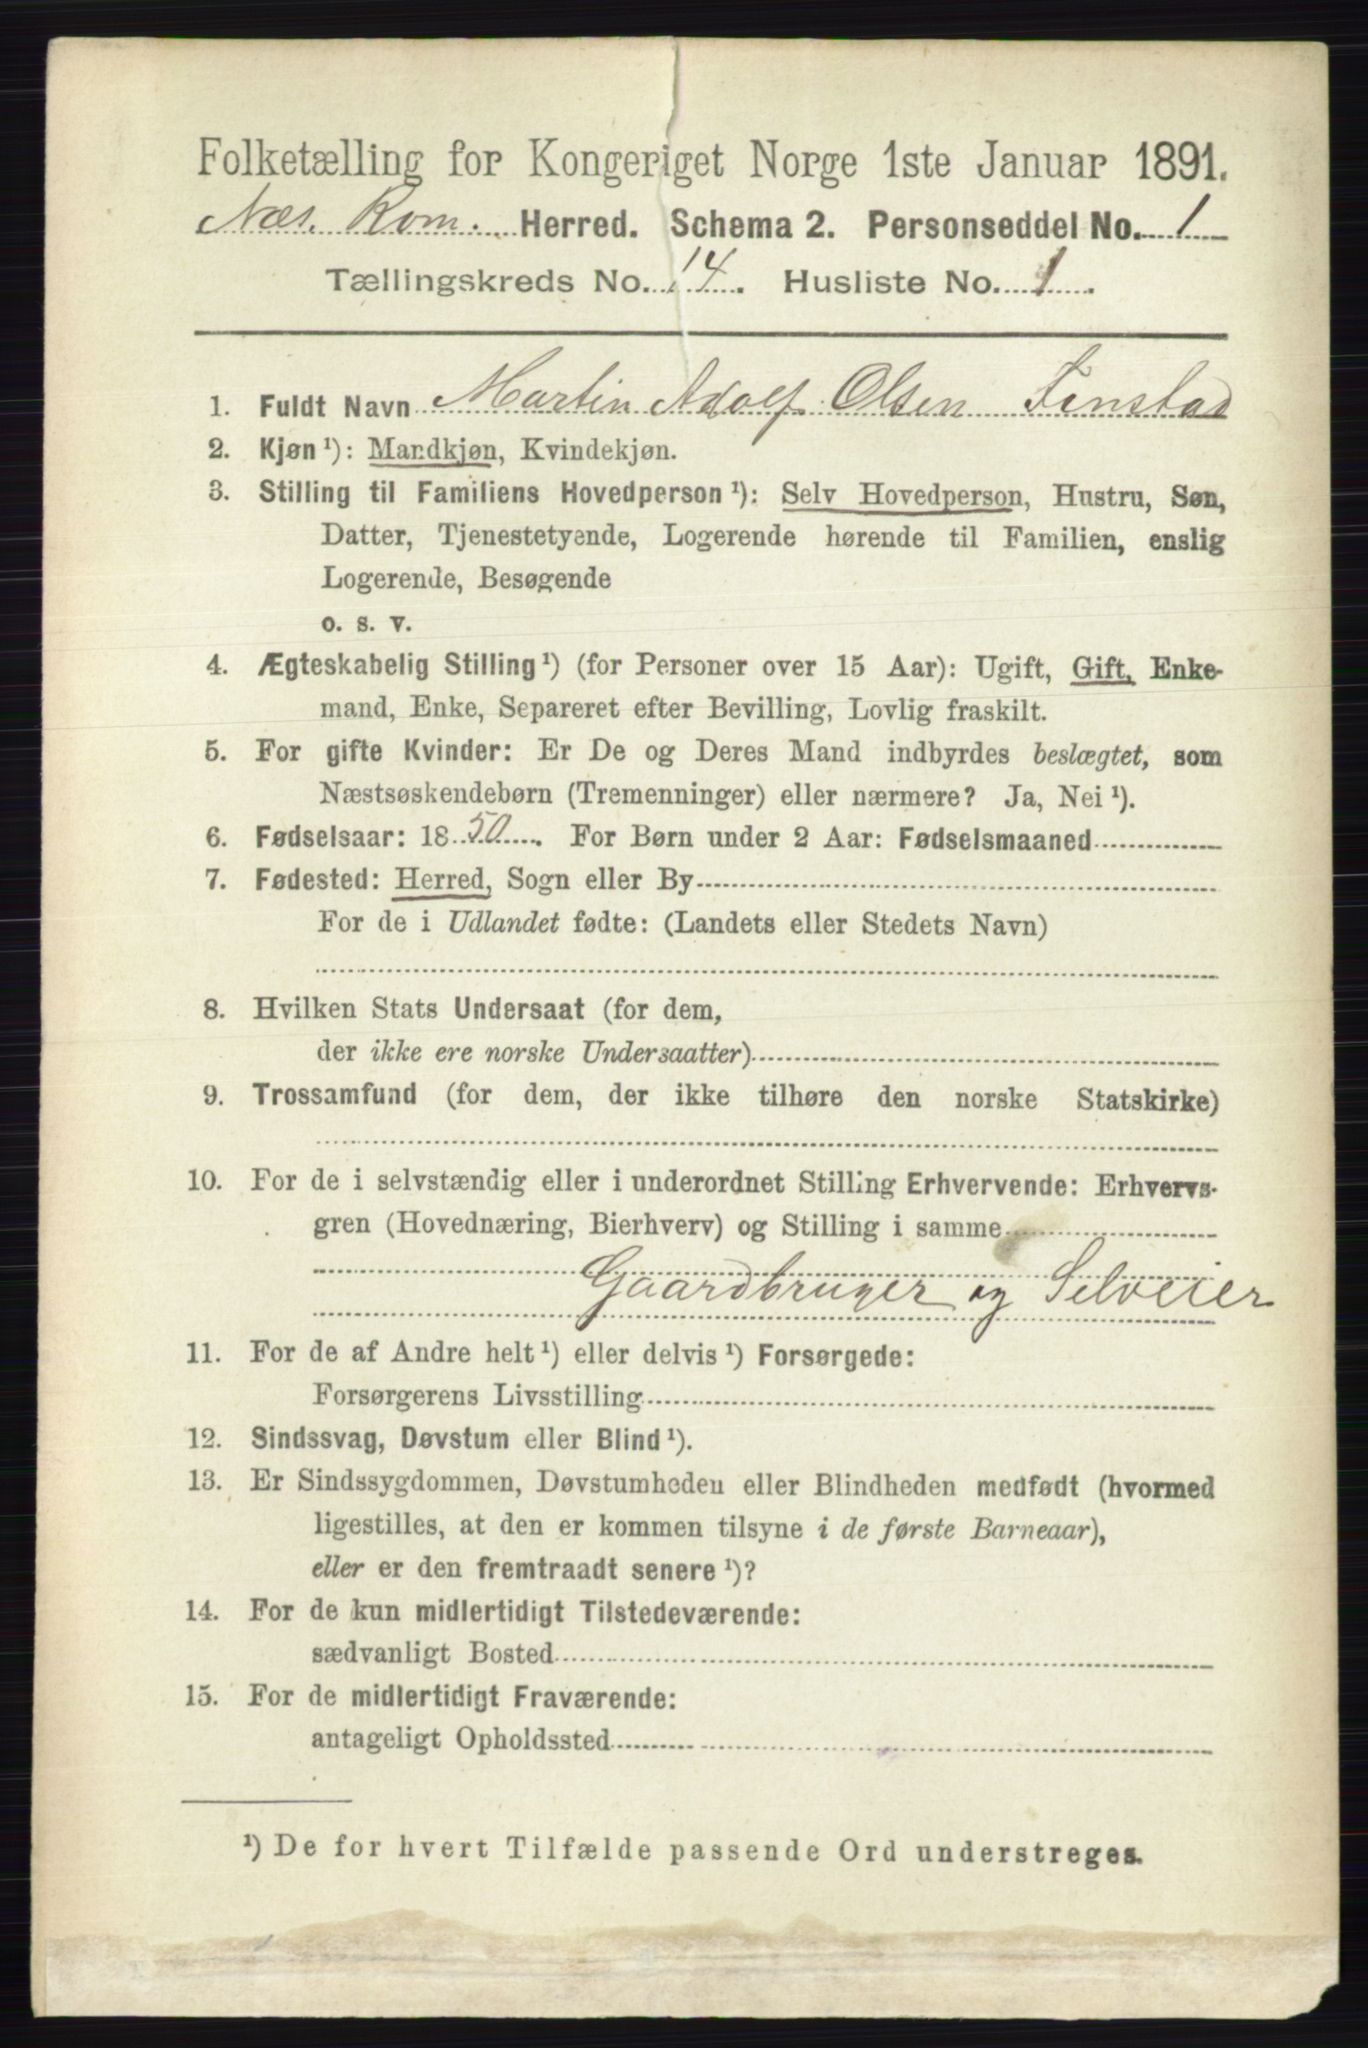 Folketælling for Kongeriget Norge 1ste Januar 1891.
Næs. Rom. Herred. Schema 2. Personseddel No. 1
Tællingskreds No. 14. Husliste No. 1.
1. Fuldt Navn Martin Adolf Olsen Finstad
2. Kjøn ¹): Mandkjøn, Kvindekjøn.
3. Stilling til Familiens Hovedperson ¹): Selv Hovedperson, Hustru, Søn,
Datter, Tjenestetyende, Logerende hørende til Familien, enslig
Logerende, Besøgende
o. s. v.
4. Ægteskabelig Stilling ¹) (for Personer over 15 Aar): Ugift, Gift, Enke-
mand, Enke, Separeret efter Bevilling, Lovlig fraskilt.
5. For gifte Kvinder: Er De og Deres Mand indbyrdes beslægtet, som
Næstsøskendebørn (Tremenninger) eller nærmere? Ja, Nei ¹).
6. Fødselsaar: 1850. For Børn under 2 Aar: Fødselsmaaned
7. Fødested: Herred, Sogn eller By
For de i Udlandet fødte: (Landets eller Stedets Navn)
8. Hvilken Stats Undersaat (for dem,
der ikke ere norske Undersaatter)
9. Trossamfund (for dem, der ikke tilhøre den norske Statskirke)
10. For de i selvstændig eller i underordnet Stilling Erhvervende: Erhvervs-
gren (Hovednæring, Bierhverv) og Stilling i samme
Gaardbruger og Selveier
11. For de af Andre helt ¹) eller delvis ¹) Forsørgede:
Forsørgerens Livsstilling
12. Sindssvag, Døvstum eller Blind ¹).
13. Er Sindssygdommen, Døvstumheden eller Blindheden medfødt (hvormed
ligestilles, at den er kommen tilsyne i de første Barneaar),
eller er den fremtraadt senere ¹)?
14. For de kun midlertidigt Tilstedeværende:
sædvanligt Bosted
15. For de midlertidigt Fraværende:
antageligt Opholdssted
¹) De for hvert Tilfælde passende Ord understreges.